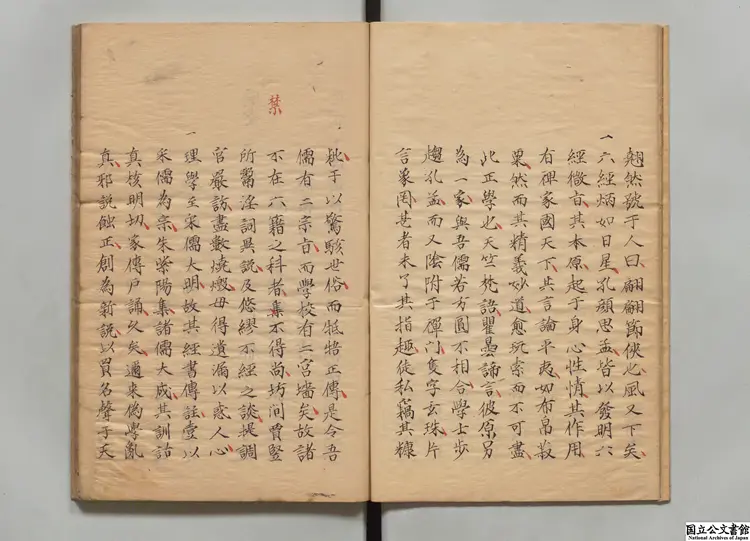 翹然號于人曰翩翩節俠也風又下矣
一六經炳如日星孔顏思孟皆以發明六
經微言其本原起于身心性情其作用
有裨家國天下其言論平夷如布帛菽
粟然而其精義妙道愈玩索而不可盡
此正學也天竺梵語瞿曇諦言彼原另
為一家與吾儒若方圓不相合學士步
趨孔孟而又陰附于禪門隻字玄珠片
言象罔世者未了其指趣徒私竊其糠
秕于以驚駭世俗而牴牾正傳是令吾
儒有二宗旨而學校有二宮墻矣故諸
不在六籍之科者集不得尚坊間賈豎
所鬻淫詞異說及悠繆不經之談提調
官嚴訪盡數燒燬毋得遺漏以惑人心
一理學至宋儒大明故其經書傳註壹以
宋儒為宗朱紫陽集諸儒大成其訓詁
真核明切家傳戶誦久矣邇來偽學亂
真邪說蝕正創為新說以買名聲于天
禁
国立公文書館
National Archives of Japan